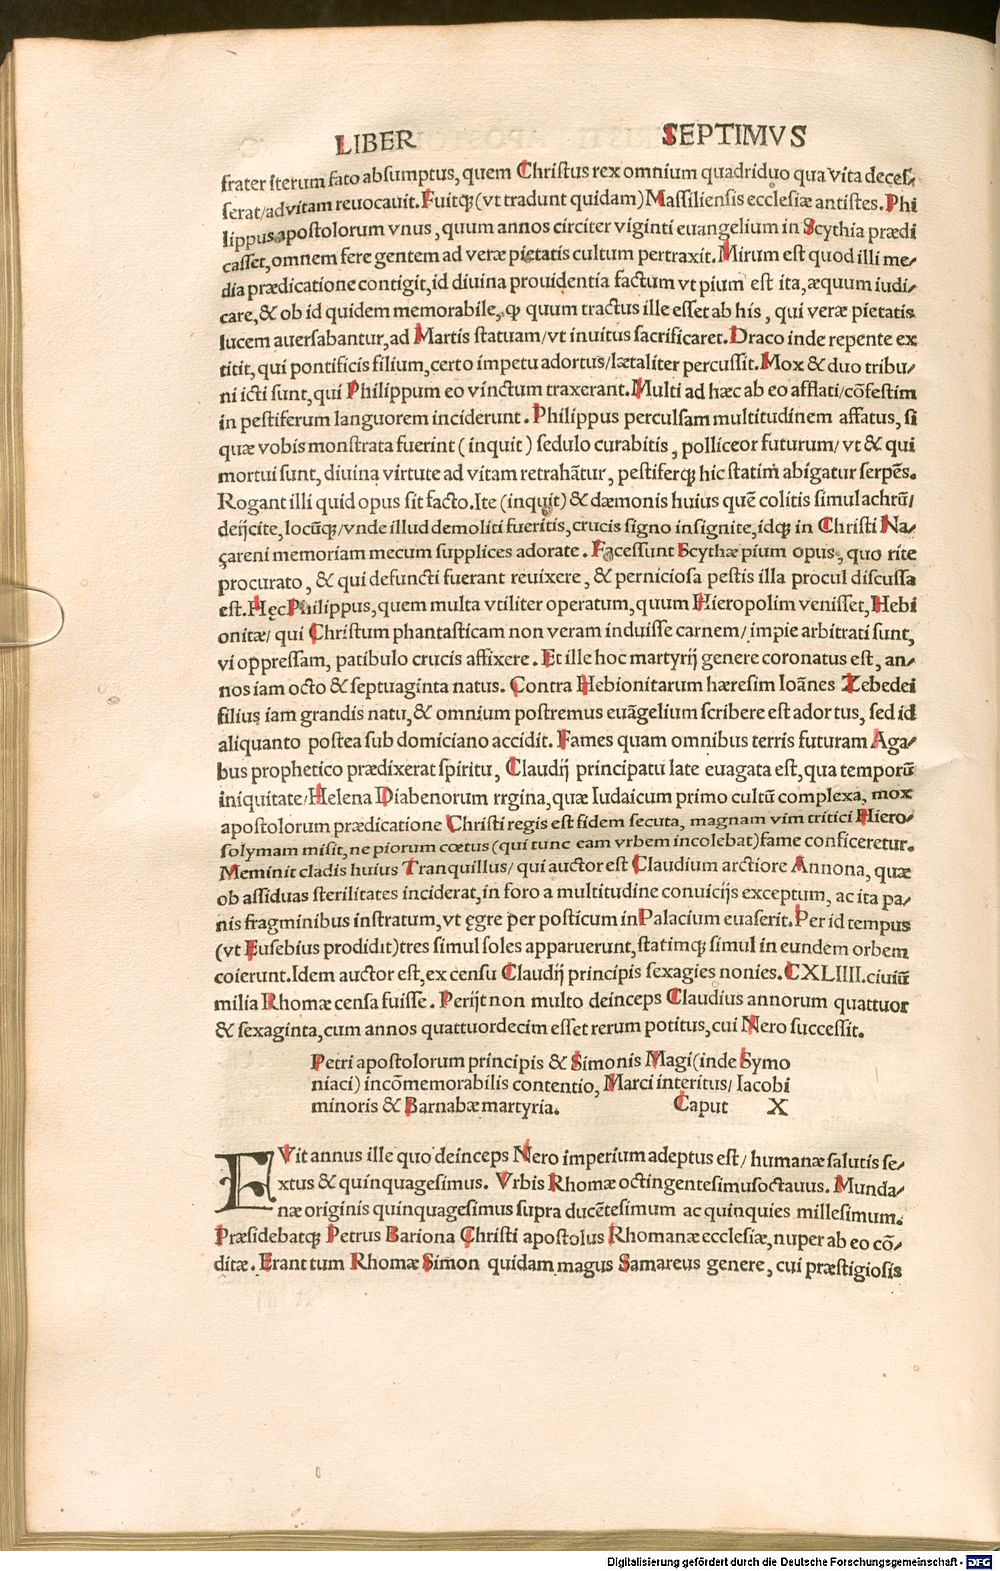 LIBER SEPTIMVS
frater iterum fato absumptus, quem Christus rex omnium quadriduo qua vita deces⸗
serat/ad vitam reuocauit. Fuitq; (vt tradunt quidam) Massiliensis ecclesiæ antistes. Phi
lippus apostolorum vnus, quum annos circiter viginti euangelium in Scythia prædi
casset, omnem fere gentem ad veræ pietatis cultum pertraxit. Mirum est quod illi me⸗
dia prædicatione contigit, id diuina prouidentia factum vt pium est ita, æquum iudi⸗
care, & ob id quidem memorabile, ꝙ quum tractus ille esset ab his, qui veræ pietatis
lucem auersabantur, ad Martis statuam/vt inuitus sacrificaret. Draco inde repente ex
titit, qui pontificis filium, certo impetu adortus/lætaliter percussit. Mox & duo tribu⸗
ni icti sunt, qui Philippum eo vinctum traxerant. Multi ad hæc ab eo afflati/cõfestim
in pestiferum languorem inciderunt. Philippus perculsam multitudinem affatus, si
quæ vobis monstrata fuerint (inquit) sedulo curabitis, polliceor futurum/ vt & qui
mortui sunt, diuina virtute ad vitam retrahãtur, pestiferq; hic statim abigatur serpẽs.
Rogant illi quid opus sit facto. Ite (inquit) & dæmonis huius quẽ colitis simulachrũ/
deijcite, locũq;/vnde illud demoliti fueritis, crucis signo insignite, idq; in Christi Na⸗
çareni memoriam mecum supplices adorate. Facessunt Scythæ pium opus, quo rite
procurato, & qui defuncti fuerant reuixere, & perniciosa pestis illa procul discussa
est. Hęc Philippus, quem multa vtiliter operatum, quum Hieropolim venisset, Hebi
onitæ/ qui Christum phantasticam non veram induisse carnem/ impie arbitrati sunt,
vi oppressam, patibulo crucis affixere. Et ille hoc martyrij genere coronatus est, an⸗
nos iam octo & septuaginta natus. Contra Hebionitarum hæresim Ioãnes Zebedei
filius iam grandis natu, & omnium postremus euãgelium scribere est adortus, sed id
aliquanto postea sub domiciano accidit. Fames quam omnibus terris futuram Aga⸗
bus prophetico prædixerat spiritu, Claudij principatu late euagata est, qua temporũ
iniquitate/Helena Diabenorum rrgina, quæ Iudaicum primo cultũ complexa, mox
apostolorum prædicatione Christi regis est fidem secuta, magnam vim tritici Hiero⸗
solymam misit, ne piorum cœtus (qui tunc eam vrbem incolebat) fame conficeretur.
Meminit cladis huius Tranquillus/ qui auctor est Claudium arctiore Annona, quæ
ob assiduas sterilitates inciderat, in foro a multitudine conuicijs exceptum, ac ita pa⸗
nis fragminibus instratum, vt ęgre per posticum in Palacium euaserit. Per id tempus
(vt Eusebius prodidit) tres simul soles apparuerunt, statimq; simul in eundem orbem
coierunt. Idem auctor est, ex censu Claudij principis sexagies nonies. CXLIIII. ciuiũ
milia Rhomæ censa fuisse. Perijt non multo deinceps Claudius annorum quattuor
& sexaginta, cum annos quattuordecim esset rerum potitus, cui Nero successit.
Petri apostolorum principis & Simonis Magi (inde Symo
niaci) incõmemorabilis contentio, Marci interitus/ Iacobi
minoris & Barnabæ martyria. Caput X
FVit annus ille quo deinceps Nero imperium adeptus est/ humanæ salutis se⸗
xtus & quinquagesimus. Vrbis Rhomæ octingentesimusoctauus. Munda⸗
næ originis quinquagesimus supra ducẽtesimum ac quinquies millesimum.
Præsidebatq; Petrus Bariona Christi apostolus Rhomanæ ecclesiæ, nuper ab eo cõ⸗
ditæ. Erant tum Rhomæ Simon quidam magus Samareus genere, cui præstigiosis
Digitalisierung gefördert durch die Deutsche Forschungsgemeinschaft - DFG